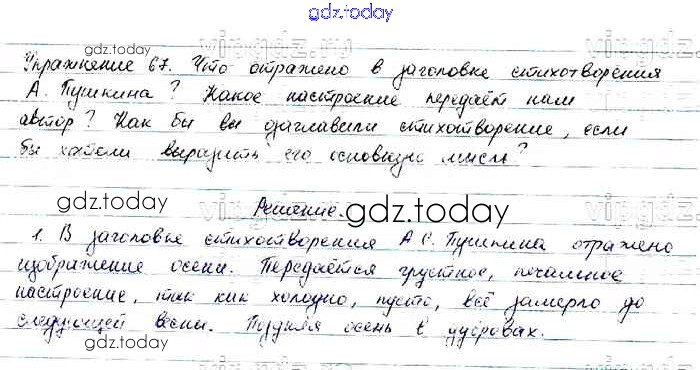 gdz.today
gdz.today vipgdz.ru vipgdz.ru
Упражнение 67. Что отражено в заголовке стихотворения
А. Пушкина? Какое настроение передаёт нам
автор? Как бы вы озаглавили стихотворение, если
бы хотели выразить его основную мысль?
gdz.today Решение. gdz.today
1. В заголовке стихотворения А.С. Пушкина отражено
изображение осени. Передаётся грустное, печальное
настроение, так как холодно, пусто, всё замерло до
следующей весны. Поздняя осень в
gdz.today gdz.today